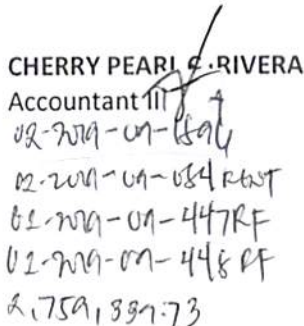 CHERRY PEARL C. RIVERA
Accountant III
02-2019-09-
02-2019-09-054 RENT
02-2019-09-447RF
02-2019-09-448 RF
2,759,339.73